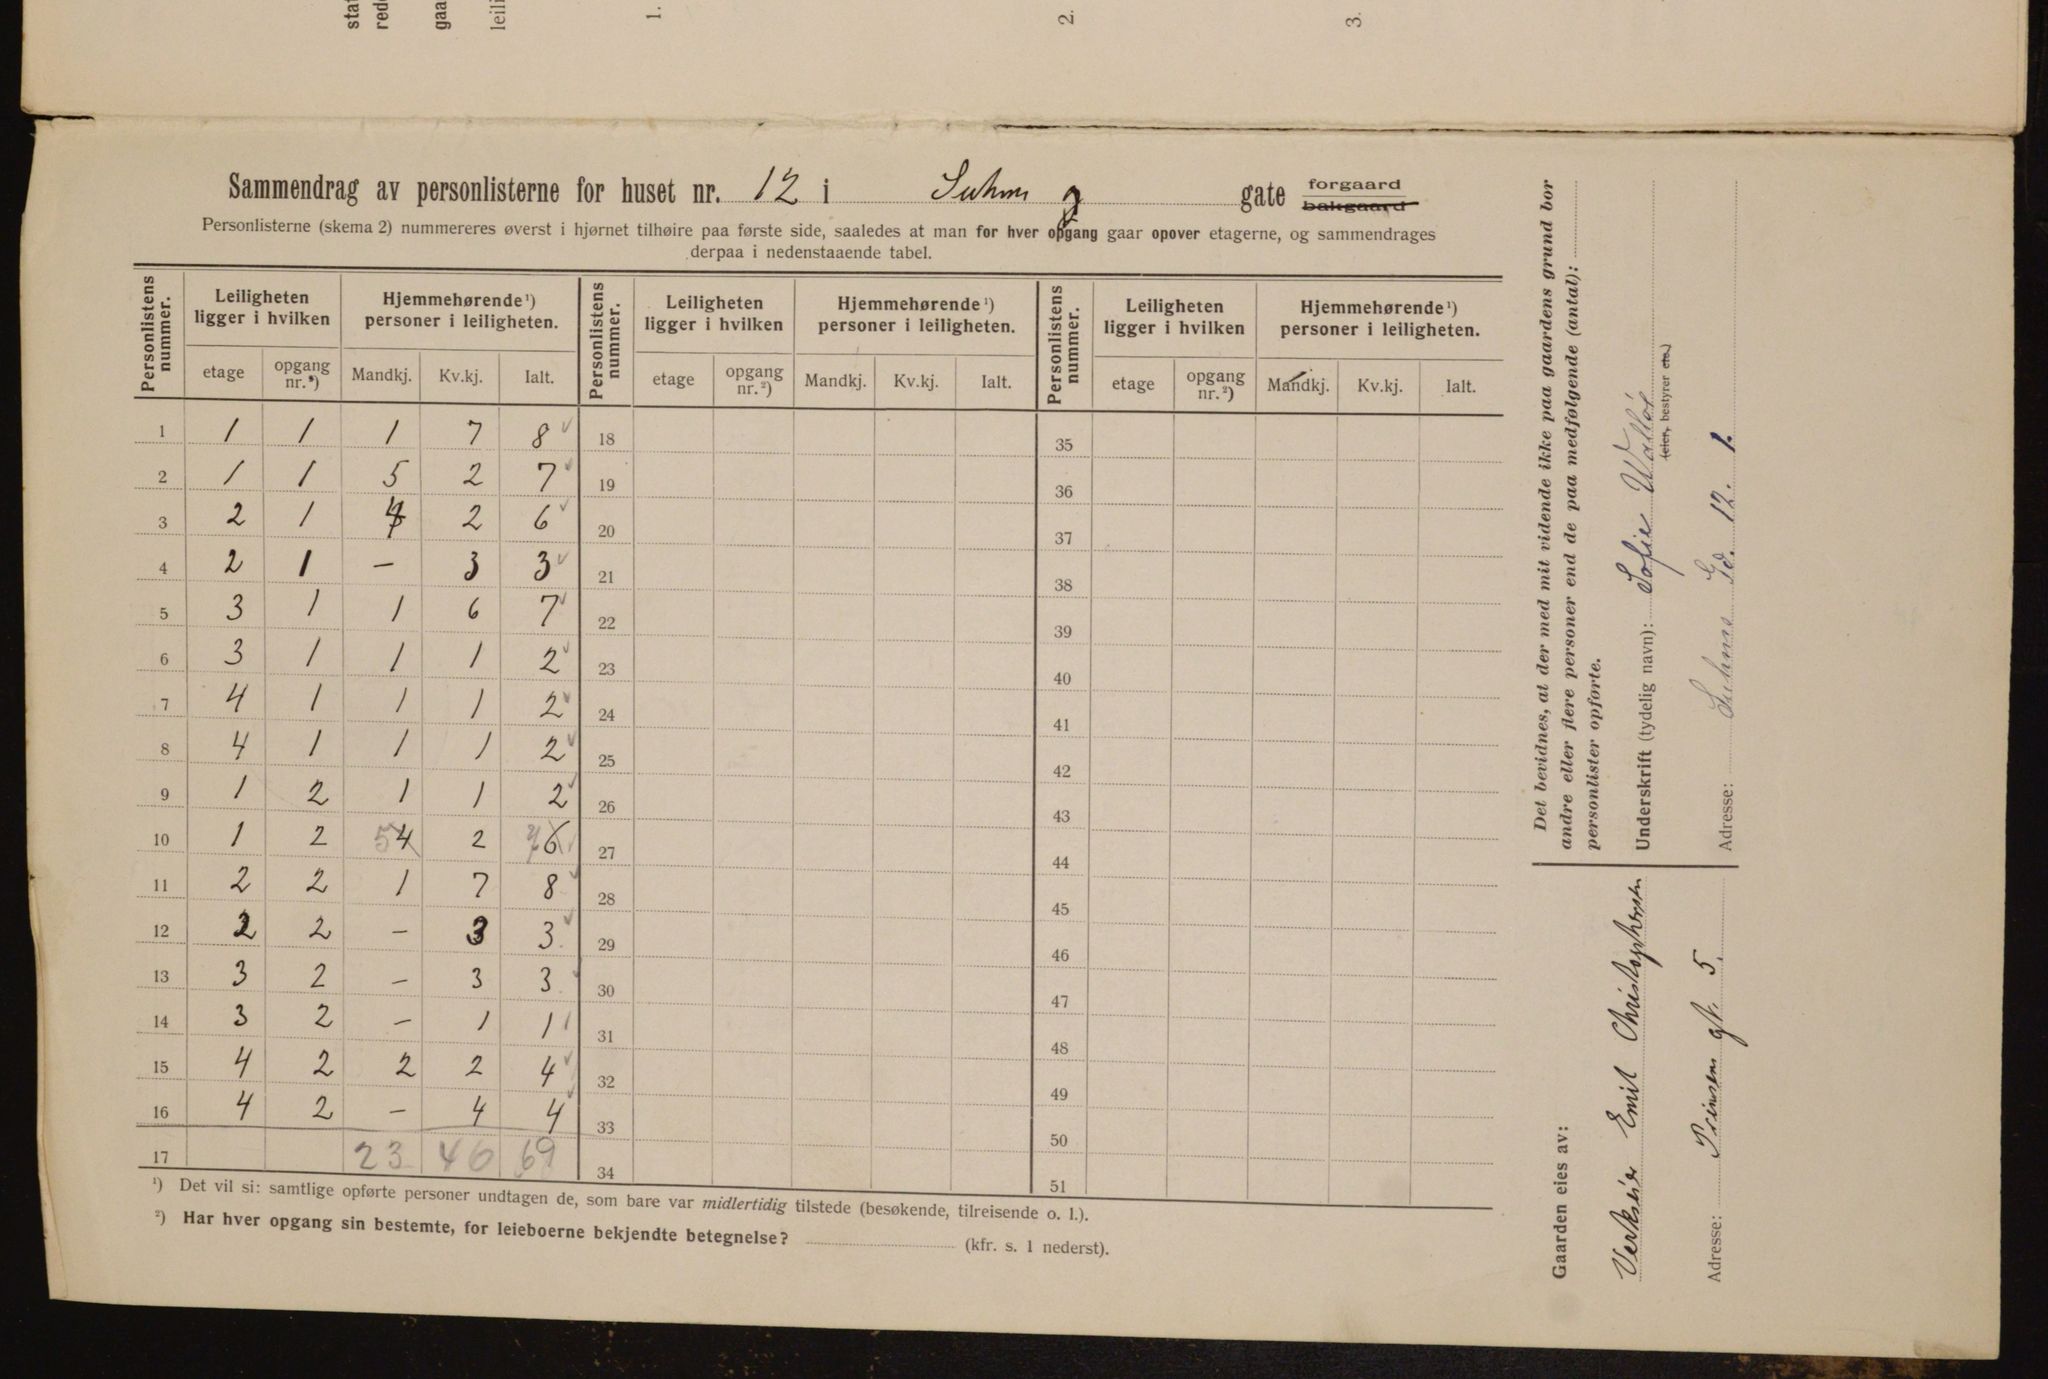 stat
rede
gaa
leili
1.
2.
3.
Sammendrag av personlisterne for huset nr. 12 i Suhms g gate forgaard bakgaard
Personlisterne (skema 2) nummereres øverst i hjørnet tilhøire paa første side, saaledes at man for hver opgang gaar opover etagerne, og sammendrages
derpaa i nedenstaaende tabel.
Personlistens nummer. Leiligheten ligger i hvilken Hjemmehørende ¹) personer i leiligheten. Personlistens nummer. Leiligheten ligger i hvilken Hjemmehørende ¹) personer i leiligheten. Personlistens nummer. Leiligheten ligger i hvilken Hjemmehørende ¹) personer i leiligheten.
etage opgang nr.²) Mandkj. Kv.kj. Ialt. etage opgang nr.²) Mandkj. Kv.kj. Ialt. etage opgang nr.²) Mandkj. Kv.kj. Ialt.
1 1 1 1 7 8 18 35
2 1 1 5 2 7 19 36
3 2 1 4 2 6 20 37
4 2 1 - 3 3 21 38
5 3 1 1 6 7 22 39
6 3 1 1 1 2 23 40
7 4 1 1 1 2 24 41
8 4 1 1 1 2 25 42
9 1 2 1 1 2 26 43
10 1 2 5 4 2 7 6 27 44
11 2 2 1 7 8 28 45
12 2 2 - 3 3 29 46
13 3 2 - 3 3 30 47
14 3 2 - 1 1 31 48
15 4 2 2 2 4 32 49
16 4 2 - 4 4 33 50
17 23 46 69 34 51
¹) Det vil si: samtlige opførte personer undtagen de, som bare var midlertidig tilstede (besøkende, tilreisende o. l.).
²) Har hver opgang sin bestemte, for leieboerne bekjendte betegnelse? (kfr. s. 1 nederst).
Det bevidnes, at der med mit vidende ikke paa gaardens grund bor
andre eller flere personer end de paa medfølgende (antal):
personlister opførte.
Underskrift (tydelig navn): Sofie
(eier, bestyrer etc.)
Adresse: Suhms Gd. 12. 1.
Gaarden eies av:
Verkseier Emil Christophersen
Adresse: Prinsens gt. 5.